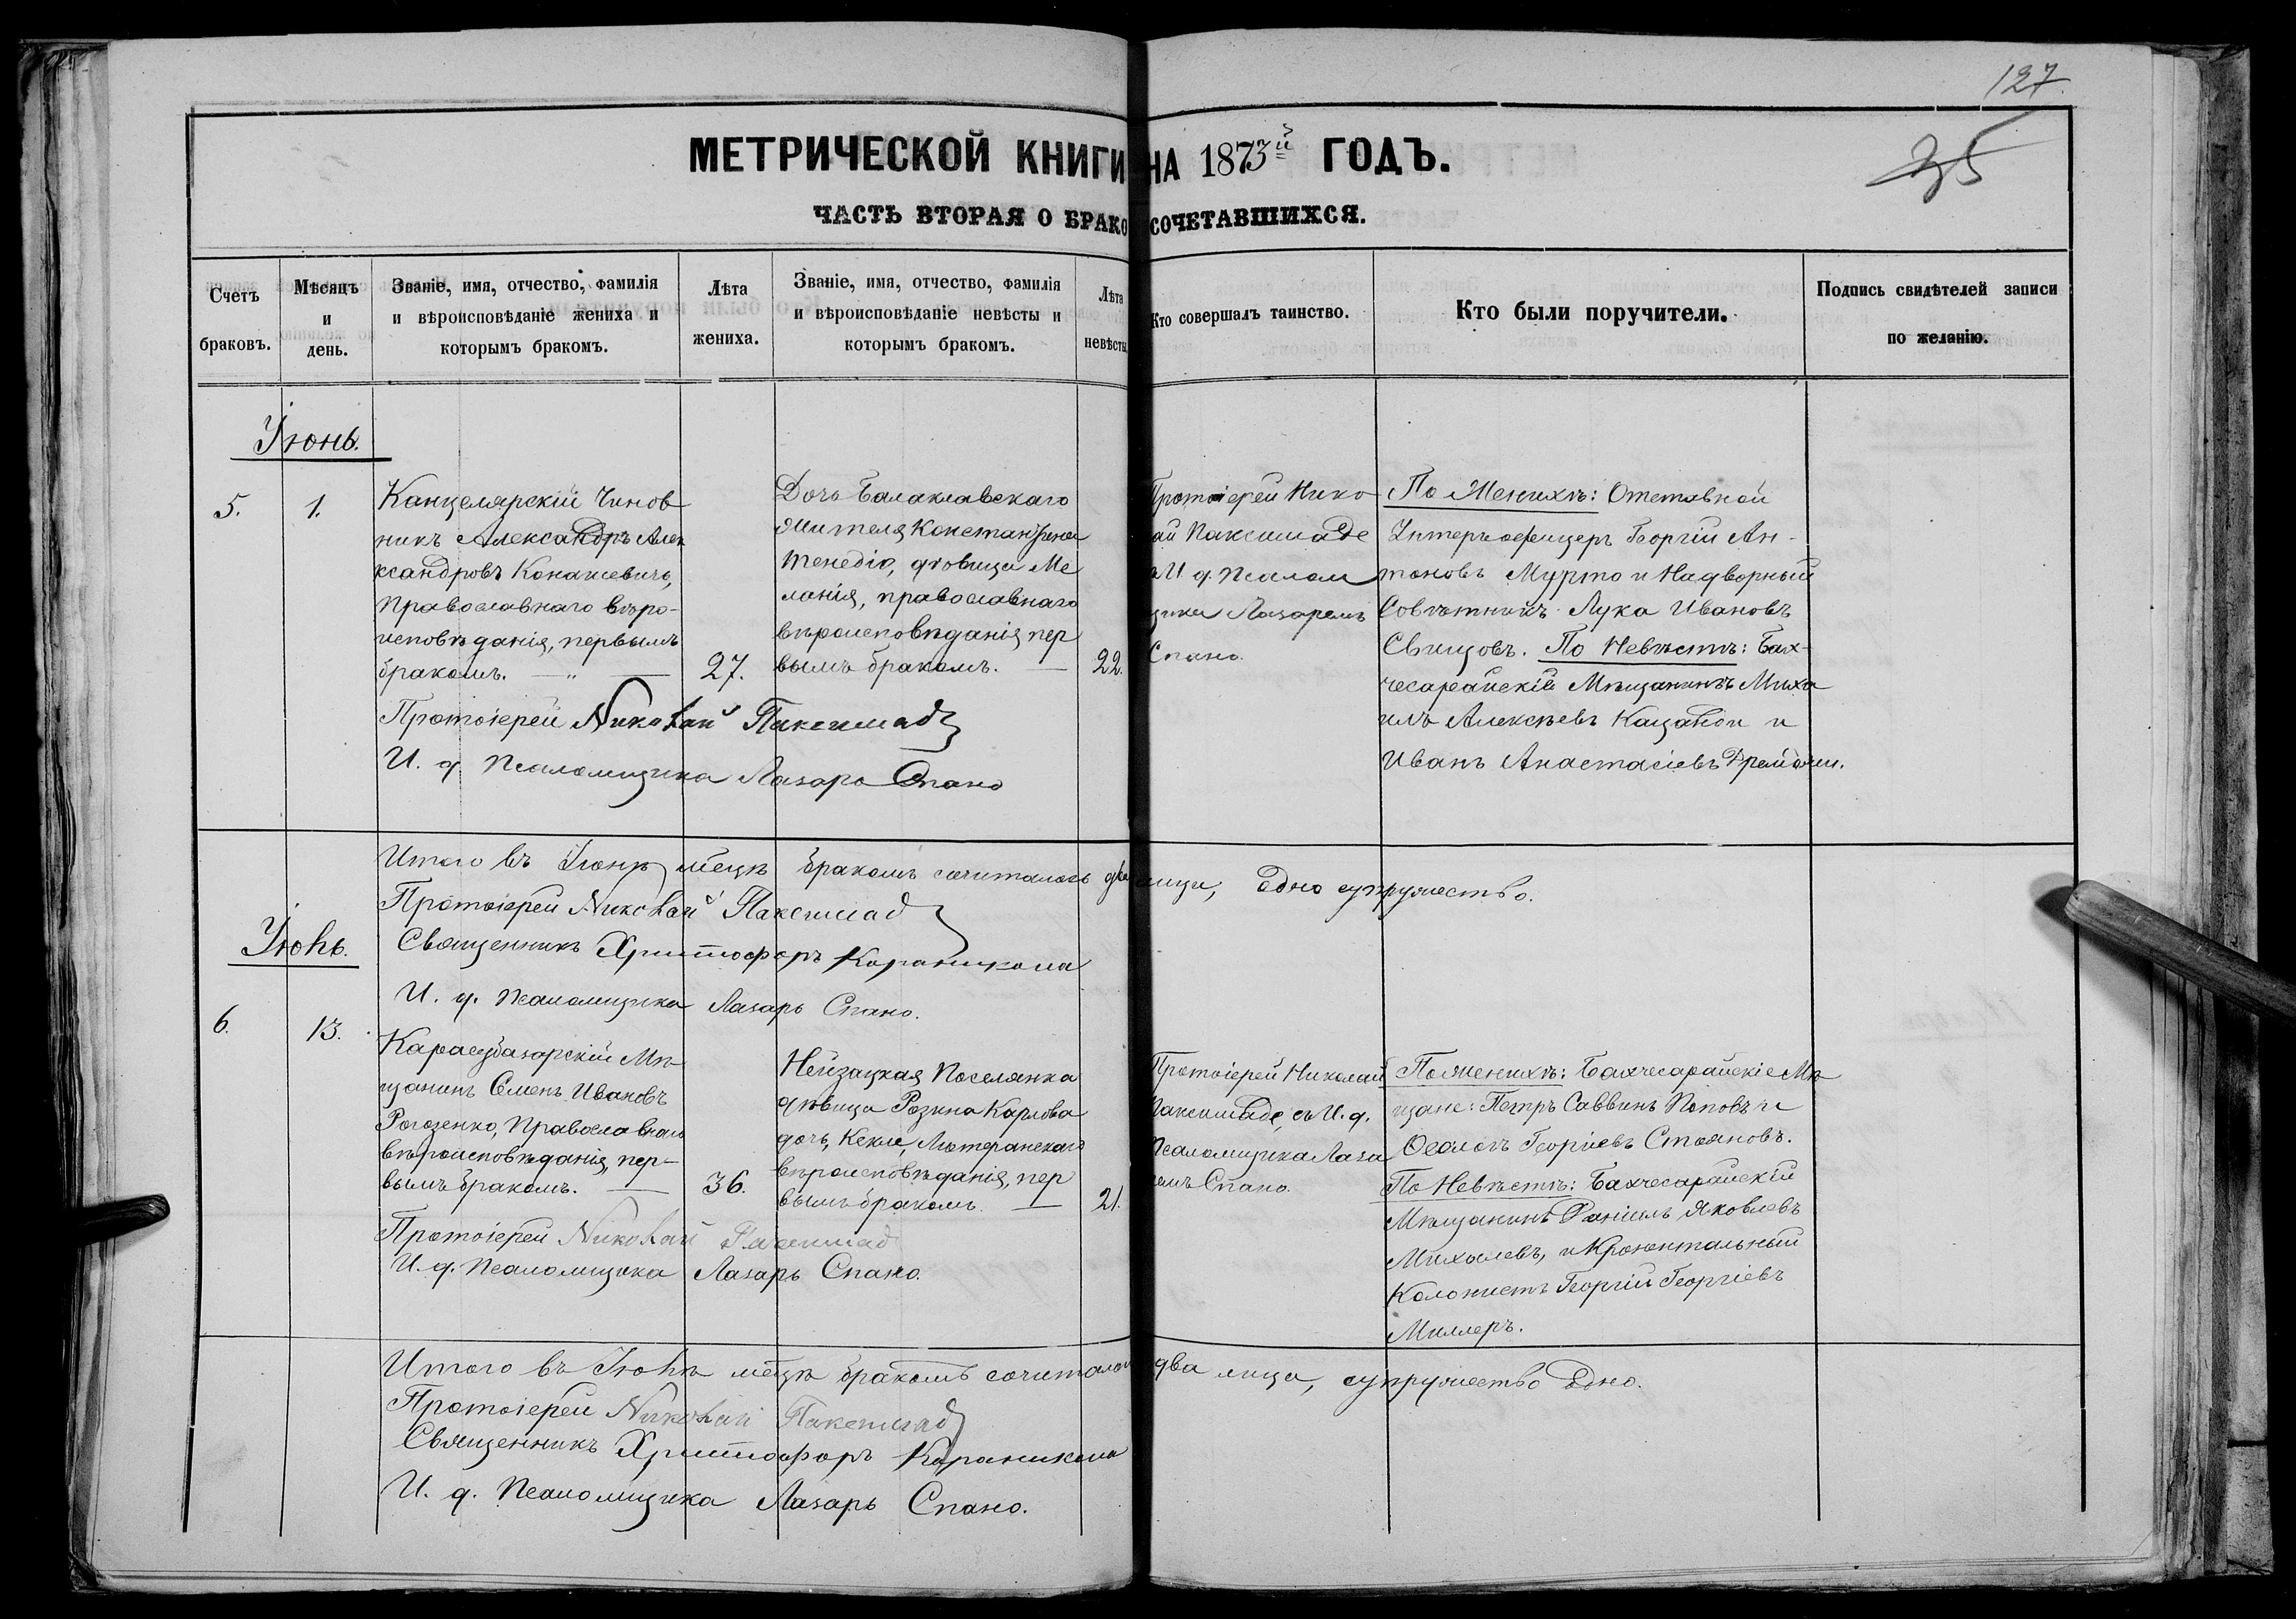 127.
35
МЕТРИЧЕСКОЙ КНИГИ НА 1873й ГОДЪ.
ЧАСТЬ ВТОРАЯ О БРАКОСОЧЕТАВШИХСЯ.
Счетъ
браковъ.
Мѣсяцъ
и
день.
Званіе, имя, отчество, фамилія
и вѣроисповѣданіе жениха и
которымъ бракомъ.
Лѣта
жениха.
Званіе, имя, отчество, фамилія
и вѣроисповѣданіе невѣсты и
которымъ бракомъ.
Лѣта
невѣсты
Кто совершалъ таинство.
Кто были поручители.
Подпись свидѣтелей записи
по желанію.
Іюнь.
5.
1.
Канцелярскій Чинов
никъ Александръ Алек
ксандровъ Конакіевичъ,
Православнаго вѣро-
исповѣданія, первымъ
бракомъ.
27.
Дочь Балаклавскаго
жителя Константина
Тенедіо, дѣвица Ме
ланія, православнаго
вѣроисповѣданія пер
вымъ бракомъ.
22.
Протоіерей Нико
ай Паксимаде
И. д. Псалом
щика Лазаремъ
Спано.
По Женихѣ: Отставной
Унтеръ-офицеръ Георгій Ан-
тоновъ Мурто и Надворный
Совѣтникъ Лука Ивановъ
Свищовъ. По Невѣстѣ: Бах-
чесарайскій Мѣщанинъ Миха
илъ Алексѣевъ и
Иванъ Анастасіевъ
Протоіерей Николай Паксимад
И. д. Псаломщика Лазарь Спано
Итого въ Іюнѣ мѣсцѣ бракомъ сочиталось два лица, одно супружество.
Протоіерей Николай Паксимад
Священникъ Христофоръ Караникола
И. д. Псаломщика Лазарь Спано.
Іюль.
6.
13.
Карасубазарскій Мѣ
щанинъ Семенъ Ивановъ
Рогозенко, Православнаго
вѣроисповѣданія, пер-
вымъ бракомъ.
36.
Нейзацкая Поселянка
дѣвица Розина Карлова
дочь, Кекле, Лютеранскаго
вѣроисповѣданія, пер
вымъ бракомъ.
21.
Протоіерей Николай
Паксимаде, съ И. д.
Псаломщика Лаза
емъ Спано.
По Женихѣ: Бахчесарайскіе Мѣ
щане: Петръ Саввинъ Поповъ и
Георгіевъ Стояновъ.
По Невѣстѣ: Бахчесарайскій
Мѣщанинъ Даніилъ Яковлевъ
Михалевъ, и Кронентальный
Колонистъ Георгій Георгіевъ
Миллеръ.
Протоіерей Николай Паксимад
И. д. Псаломщика Лазарь Спано.
Итого въ Іюлѣ мѣсцѣ бракомъ сочиталось два лица, супружество одно.
Протоіерей Николай Паксимад
Священникъ Христофоръ Караникола
И. д. Псаломщика Лазарь Спано.